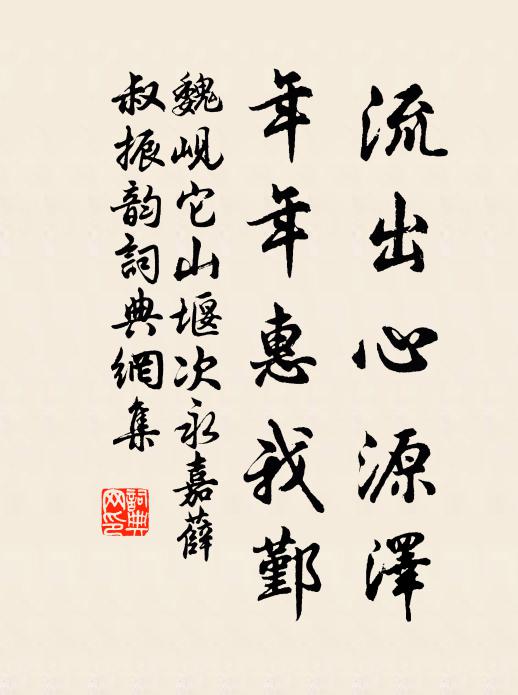 流出心源澤
年年惠我鄞
魏峴它山堰次永嘉薛
叔振韵詞典網集
詞典網印